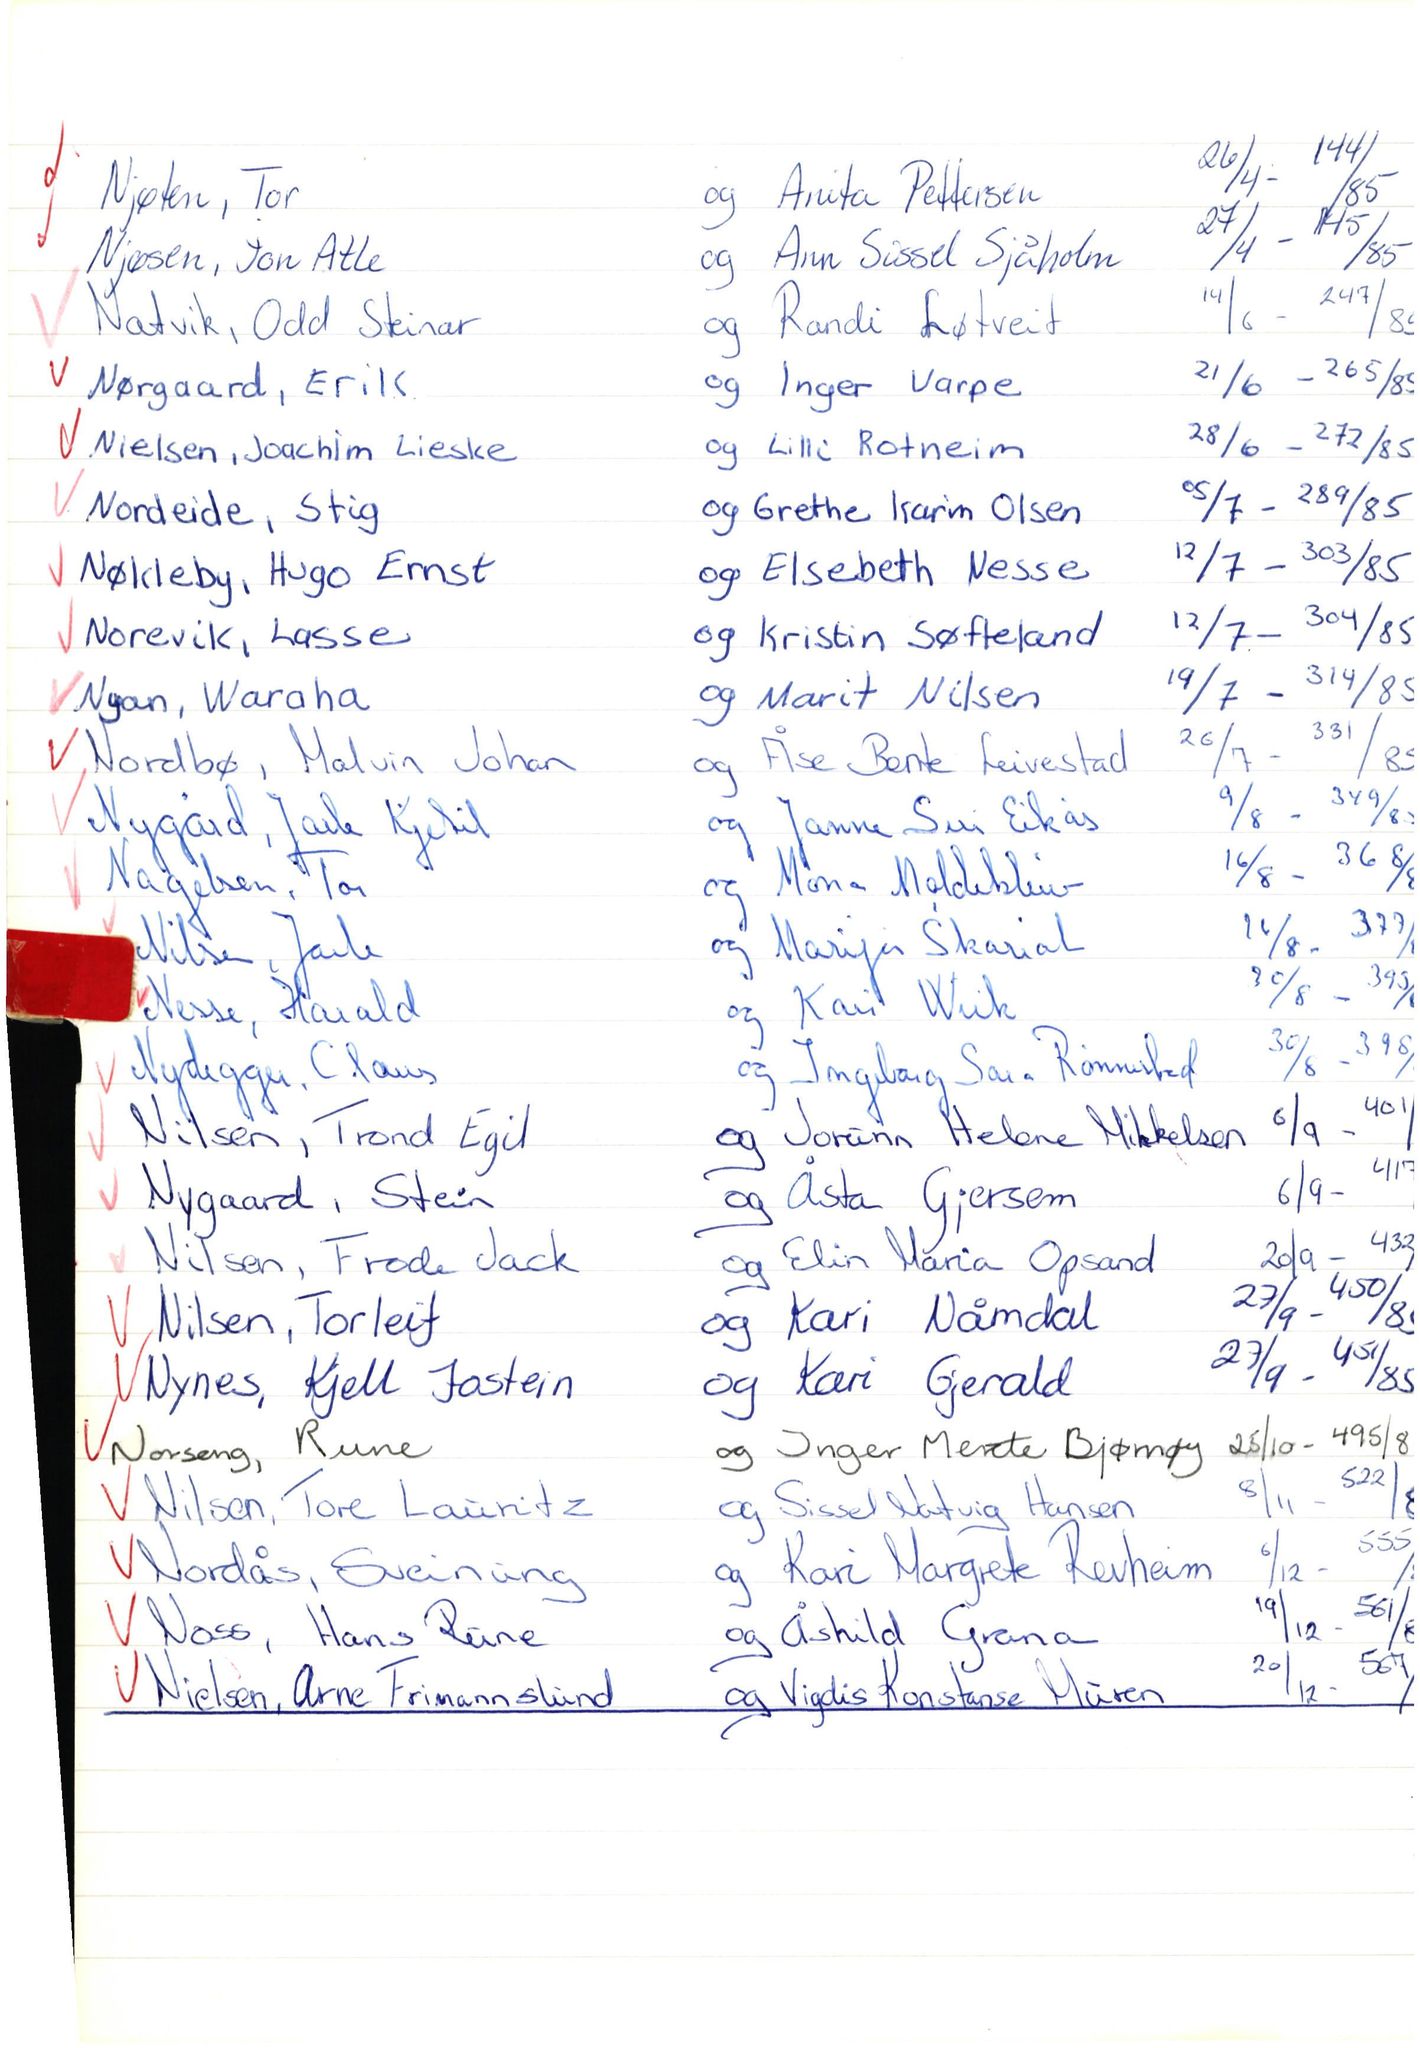 Njøten, Tor og Anita Pettersen 26/4 - 144/85
Njøsen, Jon Atle og Ann Sissel Sjåholm 27/4 - 145/85
Natvik, Odd Steinar og Randi Løtveit 14/6 - 247/85
Nørgaard, Erik og Inger Varpe 21/6 - 265/85
Nielsen, Joachim Lieske og Lilli Rotneim 28/6 - 272/85
Nordeide, Stig og Grethe Karin Olsen 05/7 - 289/85
Nøkleby, Hugo Ernst og Elsebeth Nesse 12/7 - 303/85
Norevik, Lasse og Kristin Søfteland 12/7 - 304/85
Nyan, Waraha og Marit Nilsen 19/7 - 314/85
Nordbø, Malvin Johan og Åse Bente Leivestad 26/7 - 331/85
Nygård, Jarle Kjetil og Janne Siri Eikås 9/8 - 349/8
Nagelsen, Tor og Mona Moldekleiv 16/8 - 368/8
Nilsen, Jarle og Marija 16/8 - 377/
Nesse, Harald og Kari Wiik 30/8 - 395/
Nydegger, Claus og Ingeborg Sara Rönnestad 30/8 - 398/
Nilsen, Trond Egil og Jorunn Helene Mikkelsen 6/9 - 401/
Nygaard, Stein og Åsta Gjersem 6/9 - 417
Nilsen, Frode Jack og Elin Maria Opsand 20/9 - 432
Nilsen, Torleif og Kari Nåmdal 27/9 - 450/85
Nynes, Kjell Jostein og Kari Gjerald 27/9 - 451/85
Norseng, Rune og Inger Merete Bjørnøy 25/10 - 495/8
Nilsen, Tore Lauritz og Sissel Natvig Hansen 8/11 - 522/8
Nordås, Sveinung og Kari Margrete Revheim 6/12 - 555/
Noss, Hans Rune og Åshild Grana 19/12 - 561/8
Nielsen, Arne Frimannslund og Vigdis Konstanse Müren 20/12 - 567/